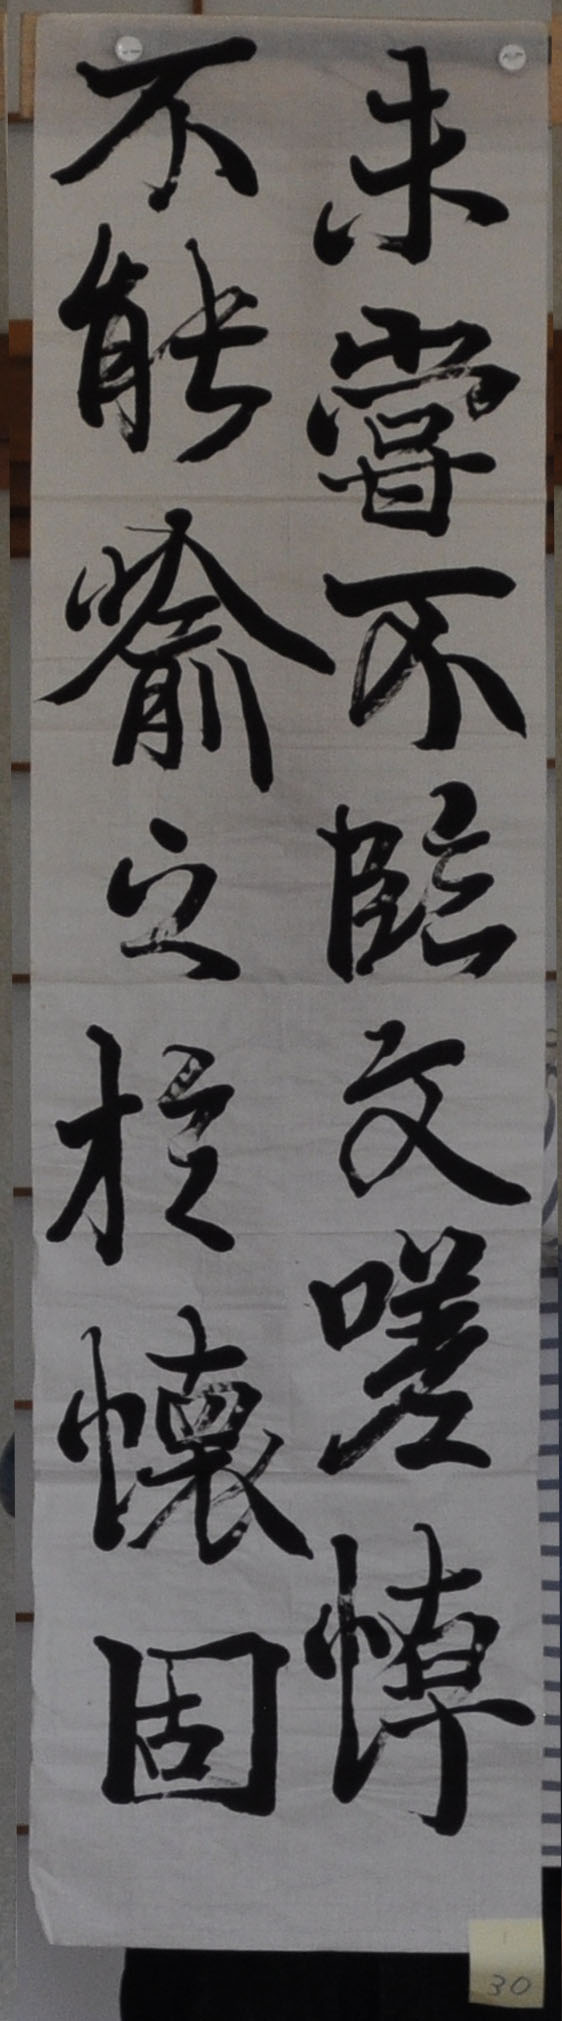 未嘗不臨文嗟悼
不能喻之於懐固
30